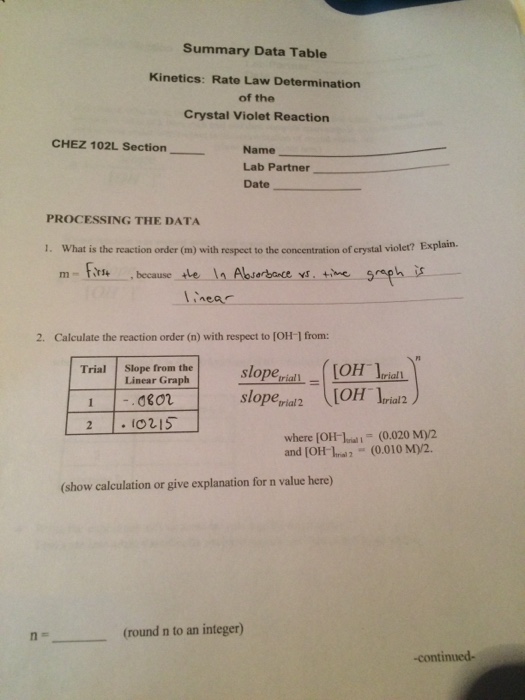 Summary Data Table
Kinetics: Rate Law Determination
of the
Crystal Violet Reaction
CHEZ 102L Section ____
Name ____
Lab Partner ____
Date ____
PROCESSING THE DATA
1. What is the reaction order (m) with respect to the concentration of crystal violet? Explain.
m = First, because the ln Absorbance vs. time graph is
linear
2. Calculate the reaction order (n) with respect to [OH-] from:
Trial | Slope from the Linear Graph
1 | -.0802
2 | .10215
slope_trial1 / slope_trial2 = ([OH⁻]_trial1 / [OH⁻]_trial2)ⁿ
where [OH-]trial 1 = (0.020 M)/2
and [OH-]trial 2 = (0.010 M)/2.
(show calculation or give explanation for n value here)
n = ____ (round n to an integer)
-continued-